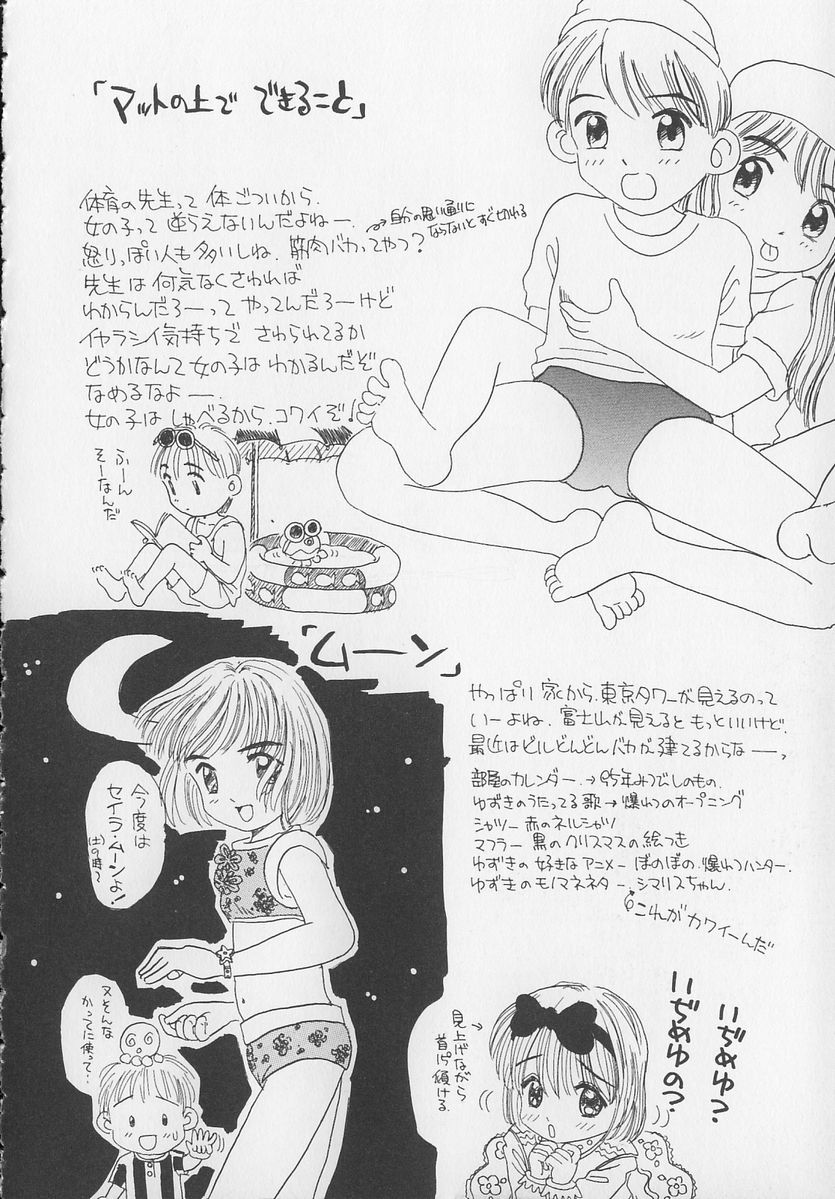 「マットの上で できること」
体育の先生って 体ごついから、
女の子って 逆らえないんだよねー、
→自分の思い通りに
ならないとすぐ切れる
怒りっぽい人も多いしね、筋肉バカってやつ?
先生は 何気なくさわれば
わからんだろーって やってんだろーけど
イヤラシイ気持ちで さわられてるか
どうかなんて女の子は わかるんだぞ
なめるなよー、
女の子は しゃべるから、コワイぞ!
ふーん
そーなんだ
「ムーン」
やっぱり 家から、東京タワーが見えるのって
いーよね、富士山が見えると もっといいけど、
最近はビルどんどんバカが建てるからなー、
部屋のカレンダー →95年みつでしのもの、
ゆずきのうたってる歌→爆れつのオープニング
シャツー 赤のネルシャツ
マフラー 黒のクリスマスの絵つき
ゆずきの好きなアニメー ぼのぼの、爆れつハンター、
ゆずきのモノマネネター、シマリスちゃん、
これが カワイーんだ
今度は
セイラ・ムーンよ!
又そんな
かってに使って…
いぢめゆ?
いぢめゆの?
見上げながら
首が傾ける